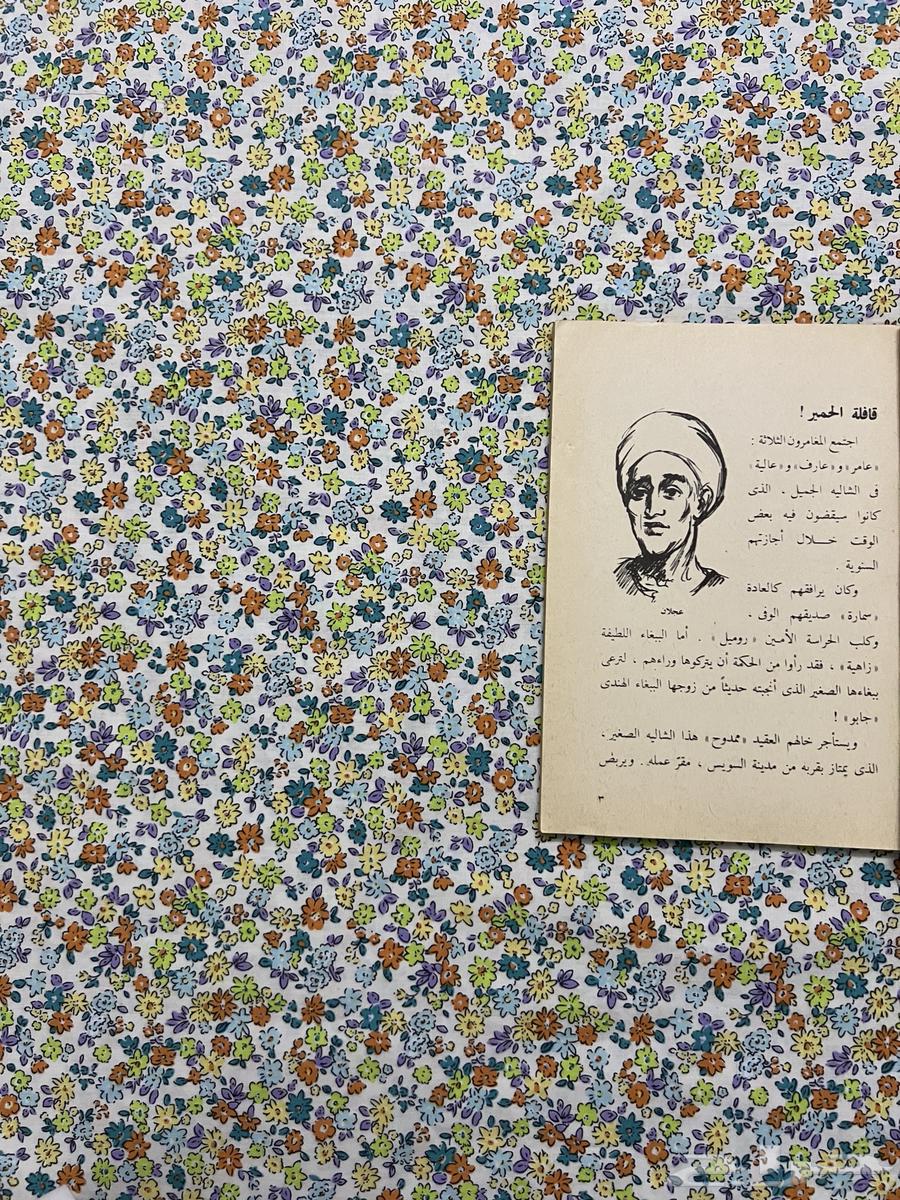 قافلة الحمير !
اجتمع المغامرون الثلاثة :
«عامر» و«عارف» و«عالية»
فى الشاليه الجميل . الذى
كانوا سيقضون فيه بعض
الوقت خــلال أجازتهم
السنوية .
وكان يرافقهم كالعادة
«سمارة» صديقهم الوفى .
عجلان
وكلب الحراسة الأمين «روميل» . أما الببغاء اللطيفة
«زاهية» ، فقد رأوا من الحكمة أن يتركوها وراءهم ، لترعى
ببغاءها الصغير الذى أنجبته حديثاً من زوجها الببغاء الهندى
«جابو» !
ويستأجر خالهم العقيد «ممدوح» هذا الشاليه الصغير .
الذى يمتاز بقربه من مدينة السويس ، مقرّ عمله . ويربض
٣